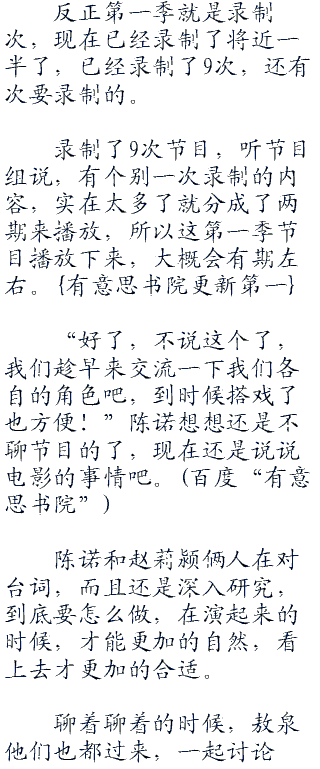 反正第一季就是录制
次，现在已经录制了将近一
半了，已经录制了9次，还有
次要录制的。
录制了9次节目，听节目
组说，有个别一次录制的内
容，实在太多了就分成了两
期来播放，所以这第一季节
目播放下来，大概会有期左
右。{有意思书院更新第一}
“好了，不说这个了，
我们趁早来交流一下我们各
自的角色吧，到时候搭戏了
也方便！”陈诺想想还是不
聊节目的了，现在还是说说
电影的事情吧。(百度“有意
思书院”)
陈诺和赵莉颍俩人在对
台词，而且还是深入研究，
到底要怎么做，在演起来的
时候，才能更加的自然，看
上去才更加的合适。
聊着聊着的时候，敖泉
他们也都过来，一起讨论